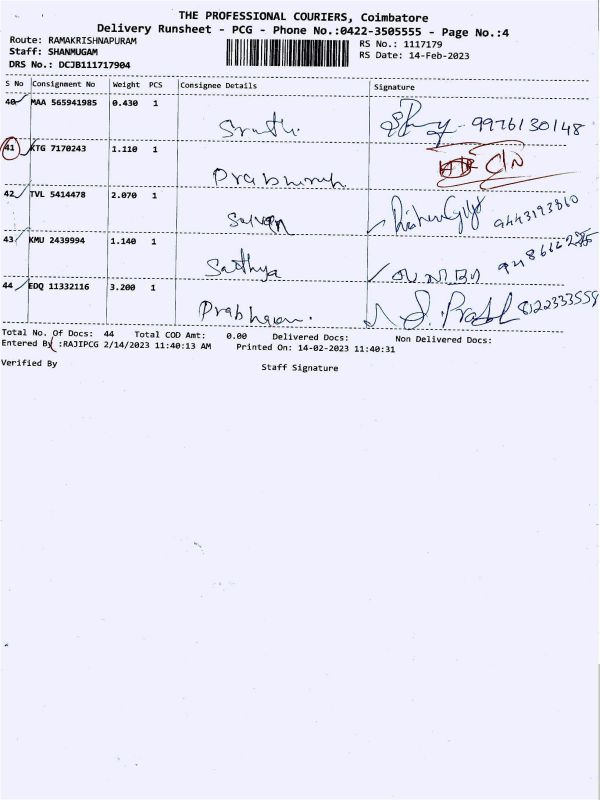 THE PROFESSIONAL COURIERS, Coimbatore
Delivery Runsheet - PCG - Phone No.:0422-3505555 - Page No.:4
Route: RAMAKRISHNAPURAM
Staff: SHANMUGAM
DRS No.: DCJB111717904
RS No.: 1117179
RS Date: 14-Feb-2023
S No Consignment No Weight PCS Consignee Details Signature
40 MAA 565941985 0.430 1
9976130148
41 KTG 7170243 1.110 1
C/N
42 TVL 5414478 2.070 1
9443193860
43 KMU 2439994 1.140 1
Sathya
44 EDQ 11332116 3.200 1
8122333559
Total No. Of Docs: 44 Total COD Amt: 0.00 Delivered Docs: Non Delivered Docs:
Entered By :RAJIPCG 2/14/2023 11:40:13 AM Printed On: 14-02-2023 11:40:31
Verified By Staff Signature